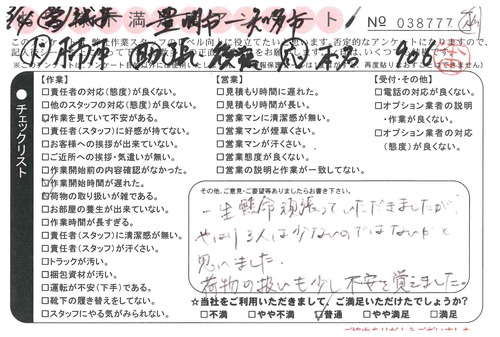 不満 アンケート
No 038777
豊岡市→知多市
このアンケートは、弊社作業スタッフのレベル向上に役立てたいと思います。否定的なアンケートになりますので、
【作業】
□責任者の対応(態度)が良くない。
□他のスタッフの対応(態度)が良くない。
□作業を見ていて不安がある。
□責任者(スタッフ)に好感が持てない。
□お客様への挨拶が出来ていない。
□ご近所への挨拶・気遣いが無い。
□作業開始前の内容確認がなかった。
□作業開始時間が遅れた。
□荷物の取り扱いが雑である。
□お部屋の養生が出来ていない。
□作業時間が長すぎる。
□責任者(スタッフ)に清潔感が無い。
□責任者(スタッフ)が汗くさい。
□トラックが汚い。
□梱包資材が汚い。
□運転が不安(下手)である。
□靴下の履き替えをしてない。
□スタッフにやる気がみられない。
●チェックリスト
【営業】
□見積もり時間に遅れた。
□見積もり時間が長い。
□営業マンに清潔感が無い。
□営業マンが煙草くさい。
□営業マンが汗くさい。
□営業態度が良くない。
□営業の説明と作業が一致してない。
【受付・その他】
□電話の対応が良くない。
□オプション業者の説明
・作業が良くない。
□オプション業者の対応
(態度)が良くない。
その他、ご意見・ご要望等ありましたらお書き下さい。
一生懸命頑張っていただきましたが、
やはり3人は少ないのではないかと
思いました。
荷物の扱いも少し不安を覚えました。
☆当社をご利用いただきまして、ご満足いただけたでしょうか?
□不満 □やや不満 □普通 □やや満足 □満足
ご協力ありがとうございました